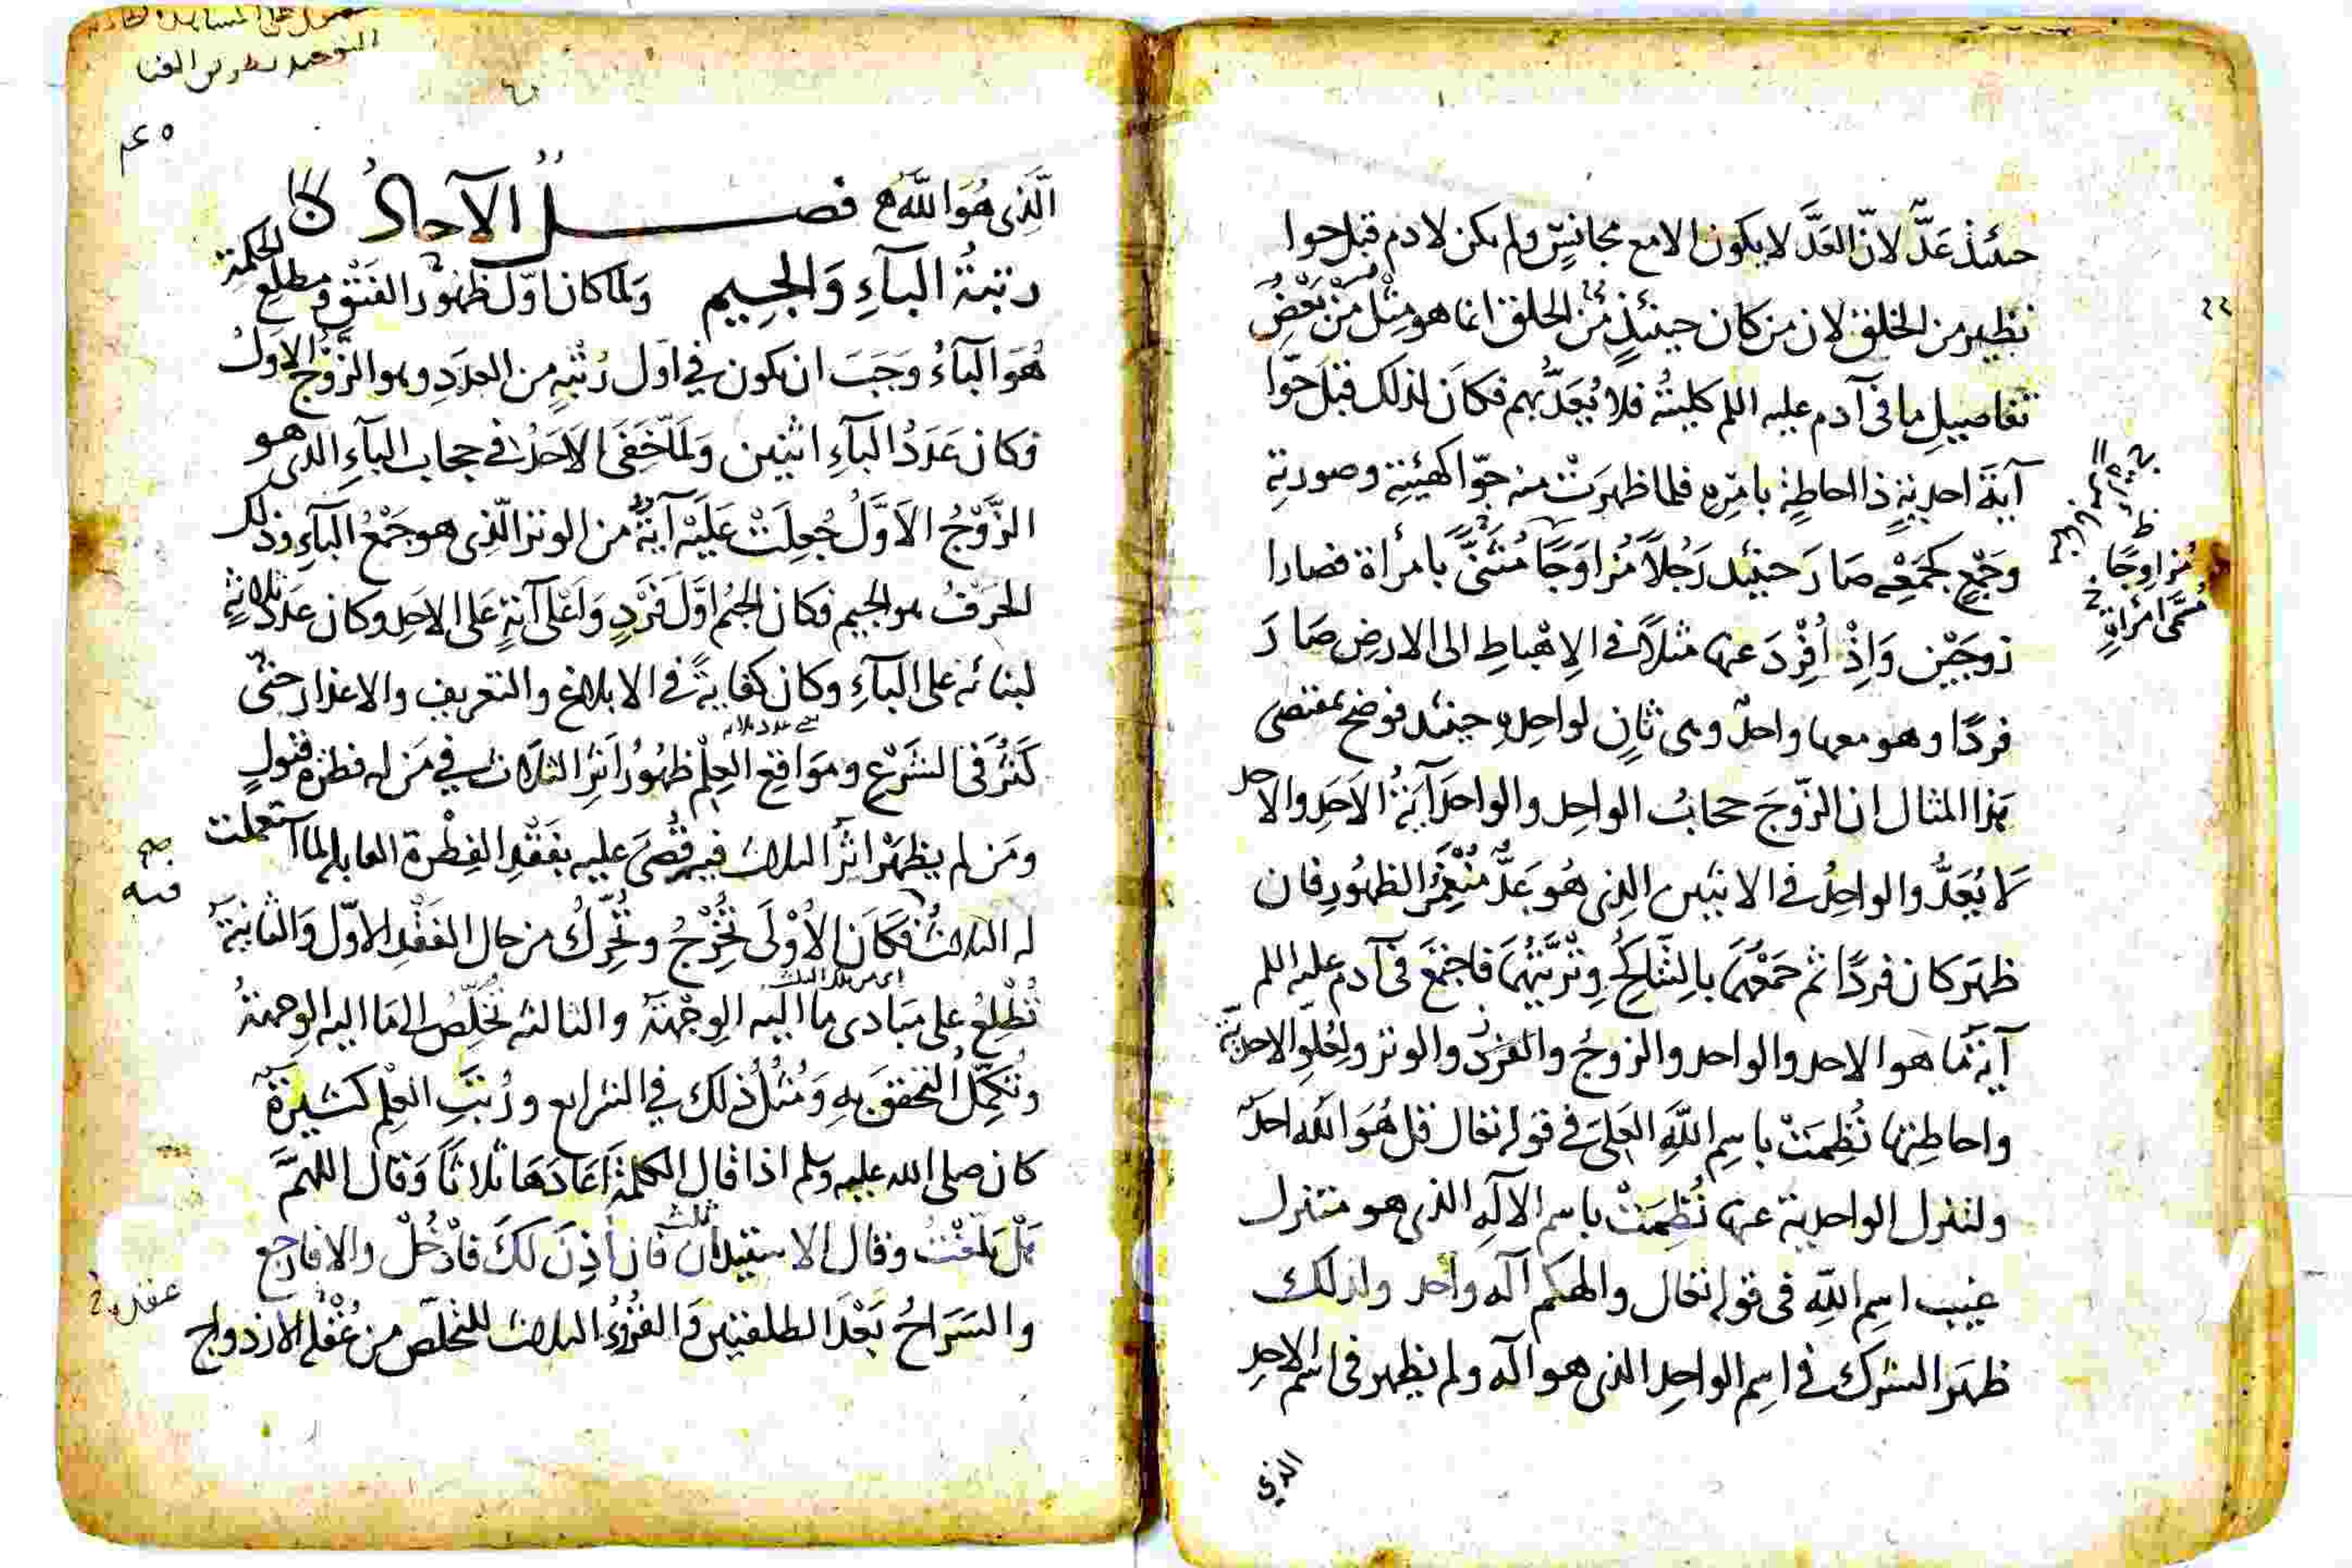 حينئذ عَدٌّ لانّ العَدَّ لا يكون الا مع مجانسٍ ولم يكن لادم قبل حوا
نظير من الخلق لان من كان حينئذٍ من الخلق انما هو مِثْل مِنْ بَعْضِ
تفاصيل ما في آدم عليه السلم كليته فلا يُعَدُّ بهم فكان لذلك قبل حَوّا
آيةَ احديةٍ ذا احاطةٍ بامرِه فلما ظهرَتْ منه حوّا كهيئتِه وصورتِه
وجَمْعٍ كجَمْعِه صار حينئذ رَجُلاً مُزاوَجًا مُثَنًّى بامرأة فصارا
زوجَيْن وَاِذْ اُفْرِدَ عنها مثلاً في الاِهْباطِ الى الارض صَارَ
فردًا وهو معها واحدٌ وهى ثانٍ لواحدِه حينئذ فوضح بمقتضى
هذا المثال ان الزّوجَ حجابُ الواحِد والواحدَ آيةُ الاَحَدِ والاحد
لا يُعَدُّ والواحِدُ في الاثنين الذي هُو عَدٌّ مُنْغَمِرُ الظهُورِ فان
ظهَر كان فردًا ثم جَمَعْهُمَا بالتَّنَاكُحِ فاجتمَع في آدم عليه السلم
آيةَ ما هو الاحد والواحد والزوجُ والفَرْدُ والوتر ولِعُلُوِّ الاحديَّةِ
واحاطتِها نُظِمَتْ باسمِ اللهِ العَلِيِّ في قوله تعالى قل هُوَ الله احدٌ
ولتنزل الواحدية عنها نُظِمَتْ باسم الالَهِ الذي هو متنزل
غيب اسمِ اللهِ في قوله تعالى والهكم اله واحد ولذلك
ظهَر الشرك في اسمِ الواحِد الذي هو اله ولم يظهر في اسم الاحدِ
الذي
مُزاوجًا
امرأةٍ
الَّذي هُوَ اللهُ فصل الآحادُ
رتبةُ البآءِ وَالجيمِ ولما كان اوّل ظهُور الفَتْقِ ومطلعِ الحكمةِ
هُوَ البآءُ وَجَبَ ان يكون في اول رُتْبةٍ من العدَدِ وهو الزّوْجُ الاولُ
فكان عَدَدُ البآءِ اثنين وَلَمّا خَفَى الاَحَدُ في حجاب البآءِ الذي هو
الزَّوْجُ الاَوَّلُ جُعِلَتْ عَلَيْه آيَةٌ من الوتر الّذي هو جَمْعُ البآءِ وذلك
الحَرفُ هو الجيم فكان الجيمُ اوَّلَ فَرْدٍ وَاَعْلَى آيةٍ عَلى الاحَدِ وكان عَدَدُه ثلاثةٍ
لبنائه على البآءِ وكان كفايةً في الابلاغ والتعريف والاعذار حتّى
كَثُرَ في الشرْعِ ومَوَاقعِ العِلْم ظهُورُ اَثرِ الثلاث في مَن له فطرة قبولٍ
ومَن لم يظهَرْ اثرُ الثلاث فيه قُضِىَ عليه بفَقْدِ الفِطْرة القابلة لما استعملت
له الثلاثُ فكَانَ الاُوْلَى تُخْرِجُ وتُحَرِّكُ من حال الفَقْدِ الاَوّل وَالثانيَةُ
تُطْلِعُ على مَبَادى مَا اليه الوِجْهَةُ والثالثة تُخَلِّصُ الى مَا اليه الوِجهَةُ
وتُكَمِّلُ التحققَ بهِ وَمُثُلُ ذلك في الشرايع ورُتَبِ العِلْم كثيرةٌ
كان صلى الله عليه وسلم اذا قال الكلمةَ اَعَادَهَا ثلاثًا وَقال اللهمَّ
هَلْ بَلّغْتُ وقال الاستيذان ثلث فان اُذِنَ لَكَ فادْخُلْ والا فارجع
والسَرَاحُ بَعْدَ الطلقتين وَالقُرُوءُ الثلاث للتخلّص من غُفْلِ الازدواج
فيه